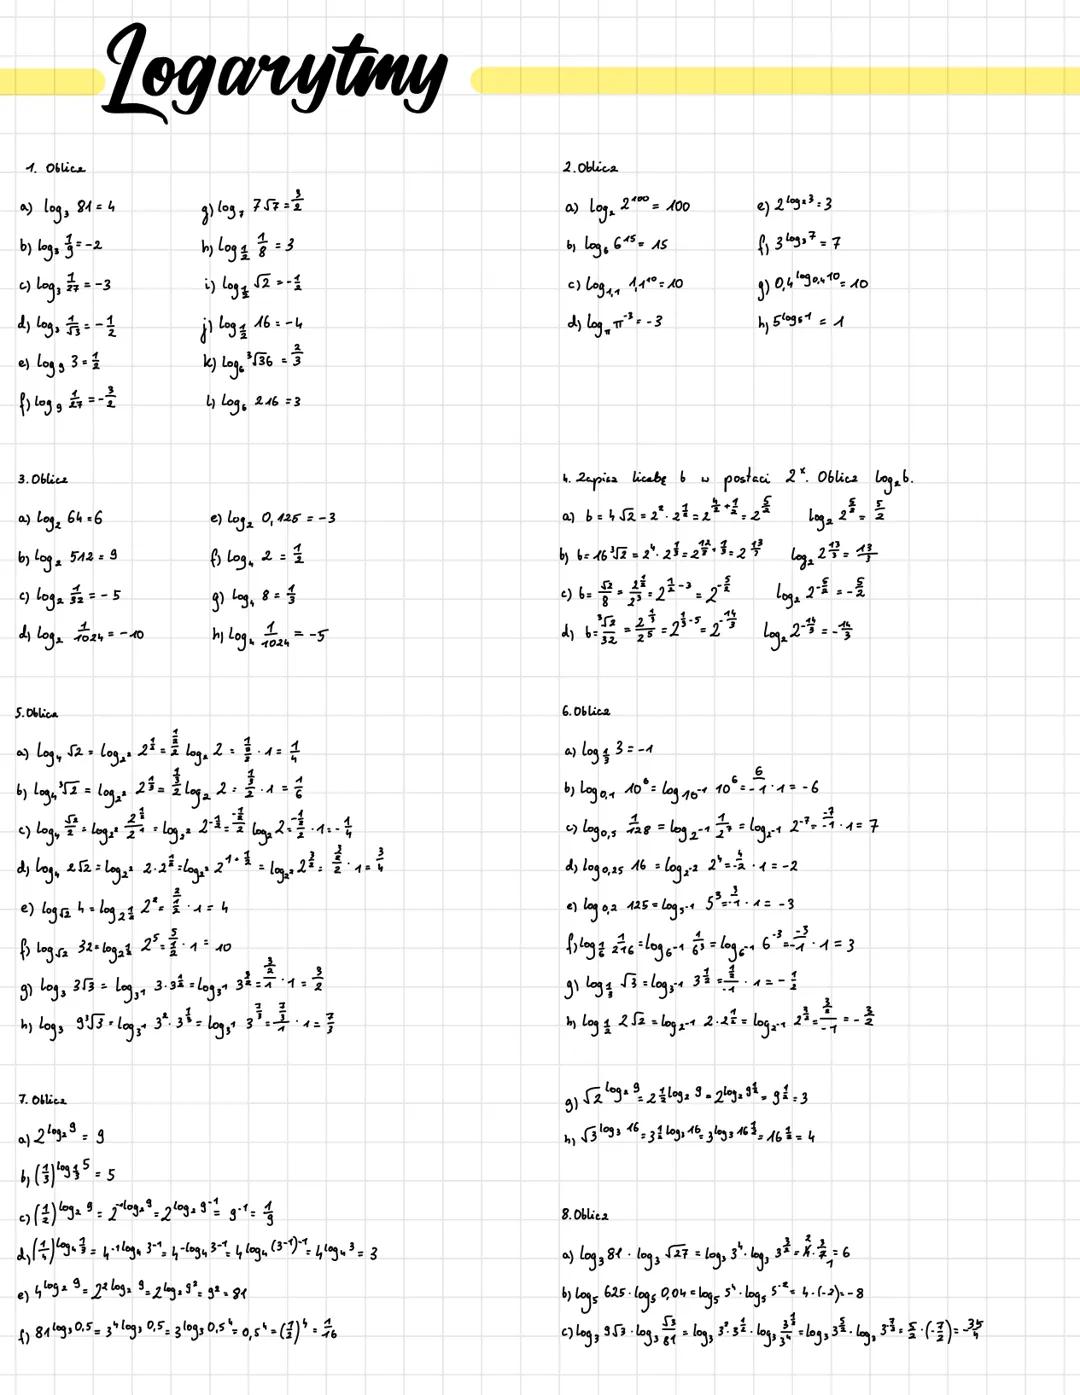 Logarytmy
1. Oblicz
a) log₃ 81 = 4
b) log₃ 1/9 = -2
c) log₃ 1/27 = -3
d) log₃ 1/√3 = -1/2
e) log₉ 3 = 1/2
f) log₉ 1/27 = -3/2
g) log₇ 7√7 = 3/2
h) log_{1/2} 1/8 = 3
i) log_{1/2} √2 = -1/2
j) log_{1/2} 16 = -4
k) log₆ ³√36 = 2/3
l) log₆ 216 = 3
2. Oblicz
a) log₂ 2¹⁰⁰ = 100
b) log₆ 6¹⁵ = 15
c) log_{1,1} 1,1¹⁰ = 10
d) log_π π⁻³ = -3
e) 2^{log₂ 3} = 3
f) 3^{log₃ 7} = 7
g) 0,4^{log_{0,4} 10} = 10
h) 5^{log₅ 1} = 1
3. Oblicz
a) log₂ 64 = 6
b) log₂ 512 = 9
c) log₂ 1/32 = -5
d) log₂ 1/1024 = -10
e) log₂ 0,125 = -3
f) log₄ 2 = 1/2
g) log₄ 8 = 1/3
h) log₄ 1/1024 = -5
4. Zapisz liczbę b w postaci 2ˣ. Oblicz log₂b.
a) b = 4√2 = 2² · 2^{1/2} = 2^{4/2 + 1/2} = 2^{5/2} log₂ 2^{5/2} = 5/2
b) b = 16 ³√2 = 2⁴ · 2^{1/3} = 2^{12/3 + 1/3} = 2^{13/3} log₂ 2^{13/3} = 13/3
c) b = √2/8 = 2^{1/2}/2³ = 2^{1/2 - 3} = 2^{-5/2} log₂ 2^{-5/2} = -5/2
d) b = ³√2/32 = 2^{1/3}/2⁵ = 2^{1/3 - 5} = 2^{-14/3} log₂ 2^{-14/3} = -14/3
5. Oblicz
a) log₄ √2 = log_{2²} 2^{1/2} = (1/2)/2 log₂ 2 = (1/2)/2 · 1 = 1/4
b) log₄ ³√2 = log_{2²} 2^{1/3} = (1/3)/2 log₂ 2 = (1/3)/2 · 1 = 1/6
c) log₄ √2/2 = log_{2²} 2^{1/2}/2¹ = log_{2²} 2^{-1/2} = (-1/2)/2 log₂ 2 = (-1/2)/2 · 1 = -1/4
d) log₄ 2√2 = log_{2²} 2 · 2^{1/2} = log_{2²} 2^{1 + 1/2} = log_{2²} 2^{3/2} = (3/2)/2 · 1 = 3/4
e) log_{√2} 4 = log_{2^{1/2}} 2² = 2/(1/2) · 1 = 4
f) log_{√2} 32 = log_{2^{1/2}} 2⁵ = 5/(1/2) · 1 = 10
g) log₃ 3√3 = log_{3¹} 3 · 3^{1/2} = log_{3¹} 3^{3/2} = (3/2)/1 · 1 = 3/2
h) log₃ 9 ³√3 = log_{3¹} 3² · 3^{1/3} = log_{3¹} 3^{7/3} = (7/3)/1 · 1 = 7/3
6. Oblicz
a) log_{1/3} 3 = -1
b) log_{0,1} 10⁶ = log_{10⁻¹} 10⁶ = 6/-1 · 1 = -6
c) log_{0,5} 1/128 = log_{2⁻¹} 1/2⁷ = log_{2⁻¹} 2⁻⁷ = -7/-1 · 1 = 7
d) log_{0,25} 16 = log_{2⁻²} 2⁴ = 4/-2 · 1 = -2
e) log_{0,2} 125 = log_{5⁻¹} 5³ = 3/-1 · 1 = -3
f) log_{1/6} 1/216 = log_{6⁻¹} 1/6³ = log_{6⁻¹} 6⁻³ = -3/-1 · 1 = 3
g) log_{1/3} √3 = log_{3⁻¹} 3^{1/2} = (1/2)/-1 · 1 = -1/2
h) log_{1/2} 2√2 = log_{2⁻¹} 2 · 2^{1/2} = log_{2⁻¹} 2^{3/2} = (3/2)/-1 = -3/2
7. Oblicz
a) 2^{log₂ 9} = 9
b) (1/3)^{log_{1/3} 5} = 5
c) (1/2)^{log₂ 9} = 2^{-1log₂ 9} = 2^{log₂ 9⁻¹} = 9⁻¹ = 1/9
d) (1/4)^{log₄ 1/3} = 4^{-1 log₄ 3⁻¹} = 4^{-log₄ 3⁻¹} = 4^{log₄ (3⁻¹)⁻¹} = 4^{log₄ 3} = 3
e) 4^{log₂ 9} = 2^{2 log₂ 9} = 2^{log₂ 9²} = 9² = 81
f) 81^{log₃ 0,5} = 3^{4 log₃ 0,5} = 3^{log₃ 0,5⁴} = 0,5⁴ = (1/2)⁴ = 1/16
g) √2^{log₂ 9} = 2^{1/2 log₂ 9} = 2^{log₂ 9^{1/2}} = 9^{1/2} = 3
h) √3^{log₃ 16} = 3^{1/2 log₃ 16} = 3^{log₃ 16^{1/2}} = 16^{1/2} = 4
8. Oblicz
a) log₃ 81 · log₃ √27 = log₃ 3⁴ · log₃ 3^{3/2} = 4 · 3/2 = 6
b) log₅ 625 · log₅ 0,04 = log₅ 5⁴ · log₅ 5⁻² = 4 · (-2) = -8
c) log₃ 9√3 · log₃ √3/81 = log₃ 3² · 3^{1/2} · log₃ 3^{1/2}/3⁴ = log₃ 3^{5/2} · log₃ 3^{-7/2} = 5/2 · (-7/2) = -35/4